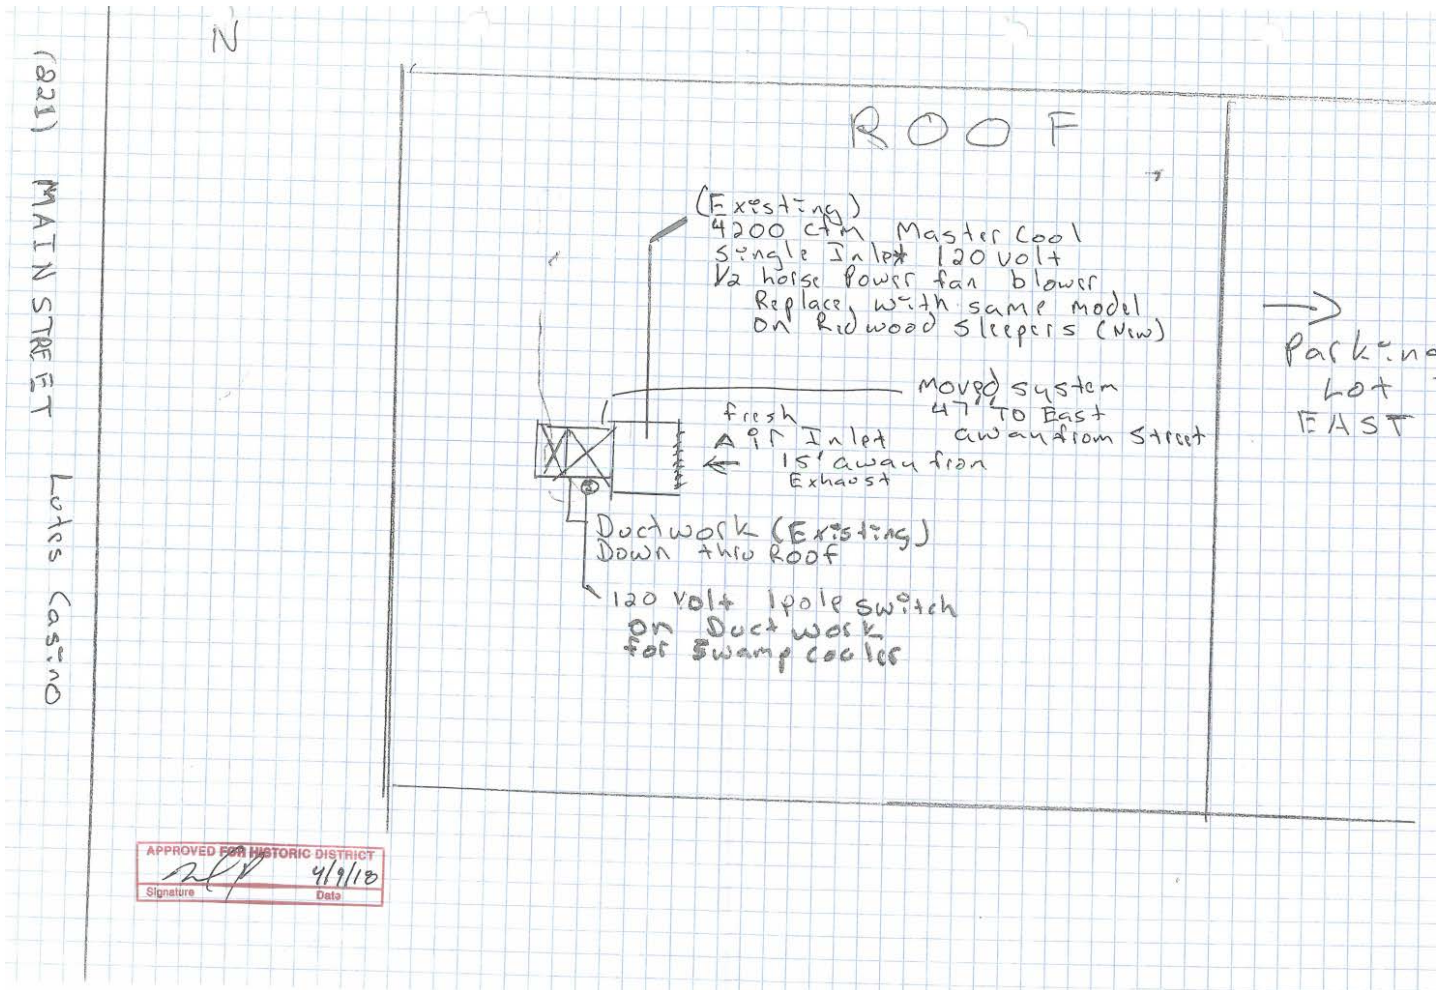 N
(221) MAIN STREET Lotus Casino
ROOF
(Existing)
4200 cfm Master Cool
Single Inlet 120 volt
1/2 horse Power fan blower
Replace, with same model
on Redwood Sleepers (New)
→
Parking
Lot
EAST
Moved system
47' TO East
away from Street
fresh
Air Inlet
← 15' away from
Exhaust
Ductwork (Existing)
Down thru Roof
120 Volt 1pole switch
on Duct work
for Swamp cooler
APPROVED FOR HISTORIC DISTRICT
4/9/18
Signature Date